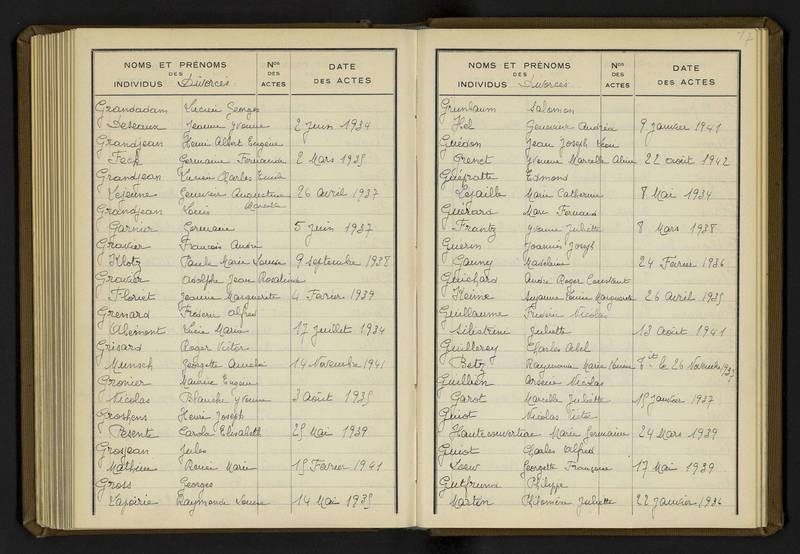 NOMS ET PRÉNOMS
DES
INDIVIDUS Divorcés
Nos
DES
ACTES
DATE
DES ACTES
Grandadam Lucien Georges
Deseaux Jeanne Yvonne 2 juin 1934
Grandjean Henri Albert Eugène
Feck Germaine Fernande 2 Mars 1935
Grandjean Lucien Charles Emile
Lejeune Germaine Augustine 26 avril 1937
Grandjean Louis
Garnier Germaine 5 juin 1937
Gravier François André
Klotz Paule Marie Louise 9 septembre 1938
Gravier Adolphe Jean
Floriet Jeanne Marguerite 4 Février 1939
Grenard Frédéric Alfred
Lucie Maria 17 juillet 1934
Grisard Roger Victor
Munsch Georgette Amélie 14 Novembre 1941
Gronier Maurice Eugène
Nicolas Blanche Yvonne 3 août 1935
Groshens Henri Joseph
Pesente Carola Elisabeth 25 Mai 1939
Grosjean Jules
Mathieu Renée Marie 15 Février 1941
Gross Georges
Vapirie Raymonde Louise 14 Mai 1935
17
NOMS ET PRÉNOMS
DES
INDIVIDUS Divorcés
Nos
DES
ACTES
DATE
DES ACTES
Grunbaum Salomon
Hel Andrée 9 janvier 1941
Guédon Jean Joseph Léon
Grenet Yvonne Marcelle Aline 22 août 1942
Edmond
Marie Catherine 8 Mai 1934
Guérard Marc Fernand
Frantz Yvonne Juliette 8 Mars 1938
Guérin Joannis Joseph
Gauny Madeleine 24 Février 1936
Guichard André Roger Constant
Heine Suzanne Louise Marguerite 26 Avril 1935
Guillaume Frédéric Nicolas
Silestrini Juliette 13 Août 1941
Guillerey Charles Abel
Betz Raymonde Marie Louise le 26 Novembre 1937
Guillien Arsène Nicolas
Garot Marcelle Juliette 15 janvier 1937
Guiot Nicolas Victor
Hautecouverture Marie Germaine 24 Mars 1939
Guiot Charles Alfred
Loew Georgette Françoise 17 Mai 1939
Gutfrund Philippe
Martin Philomène Juliette 22 janvier 1936